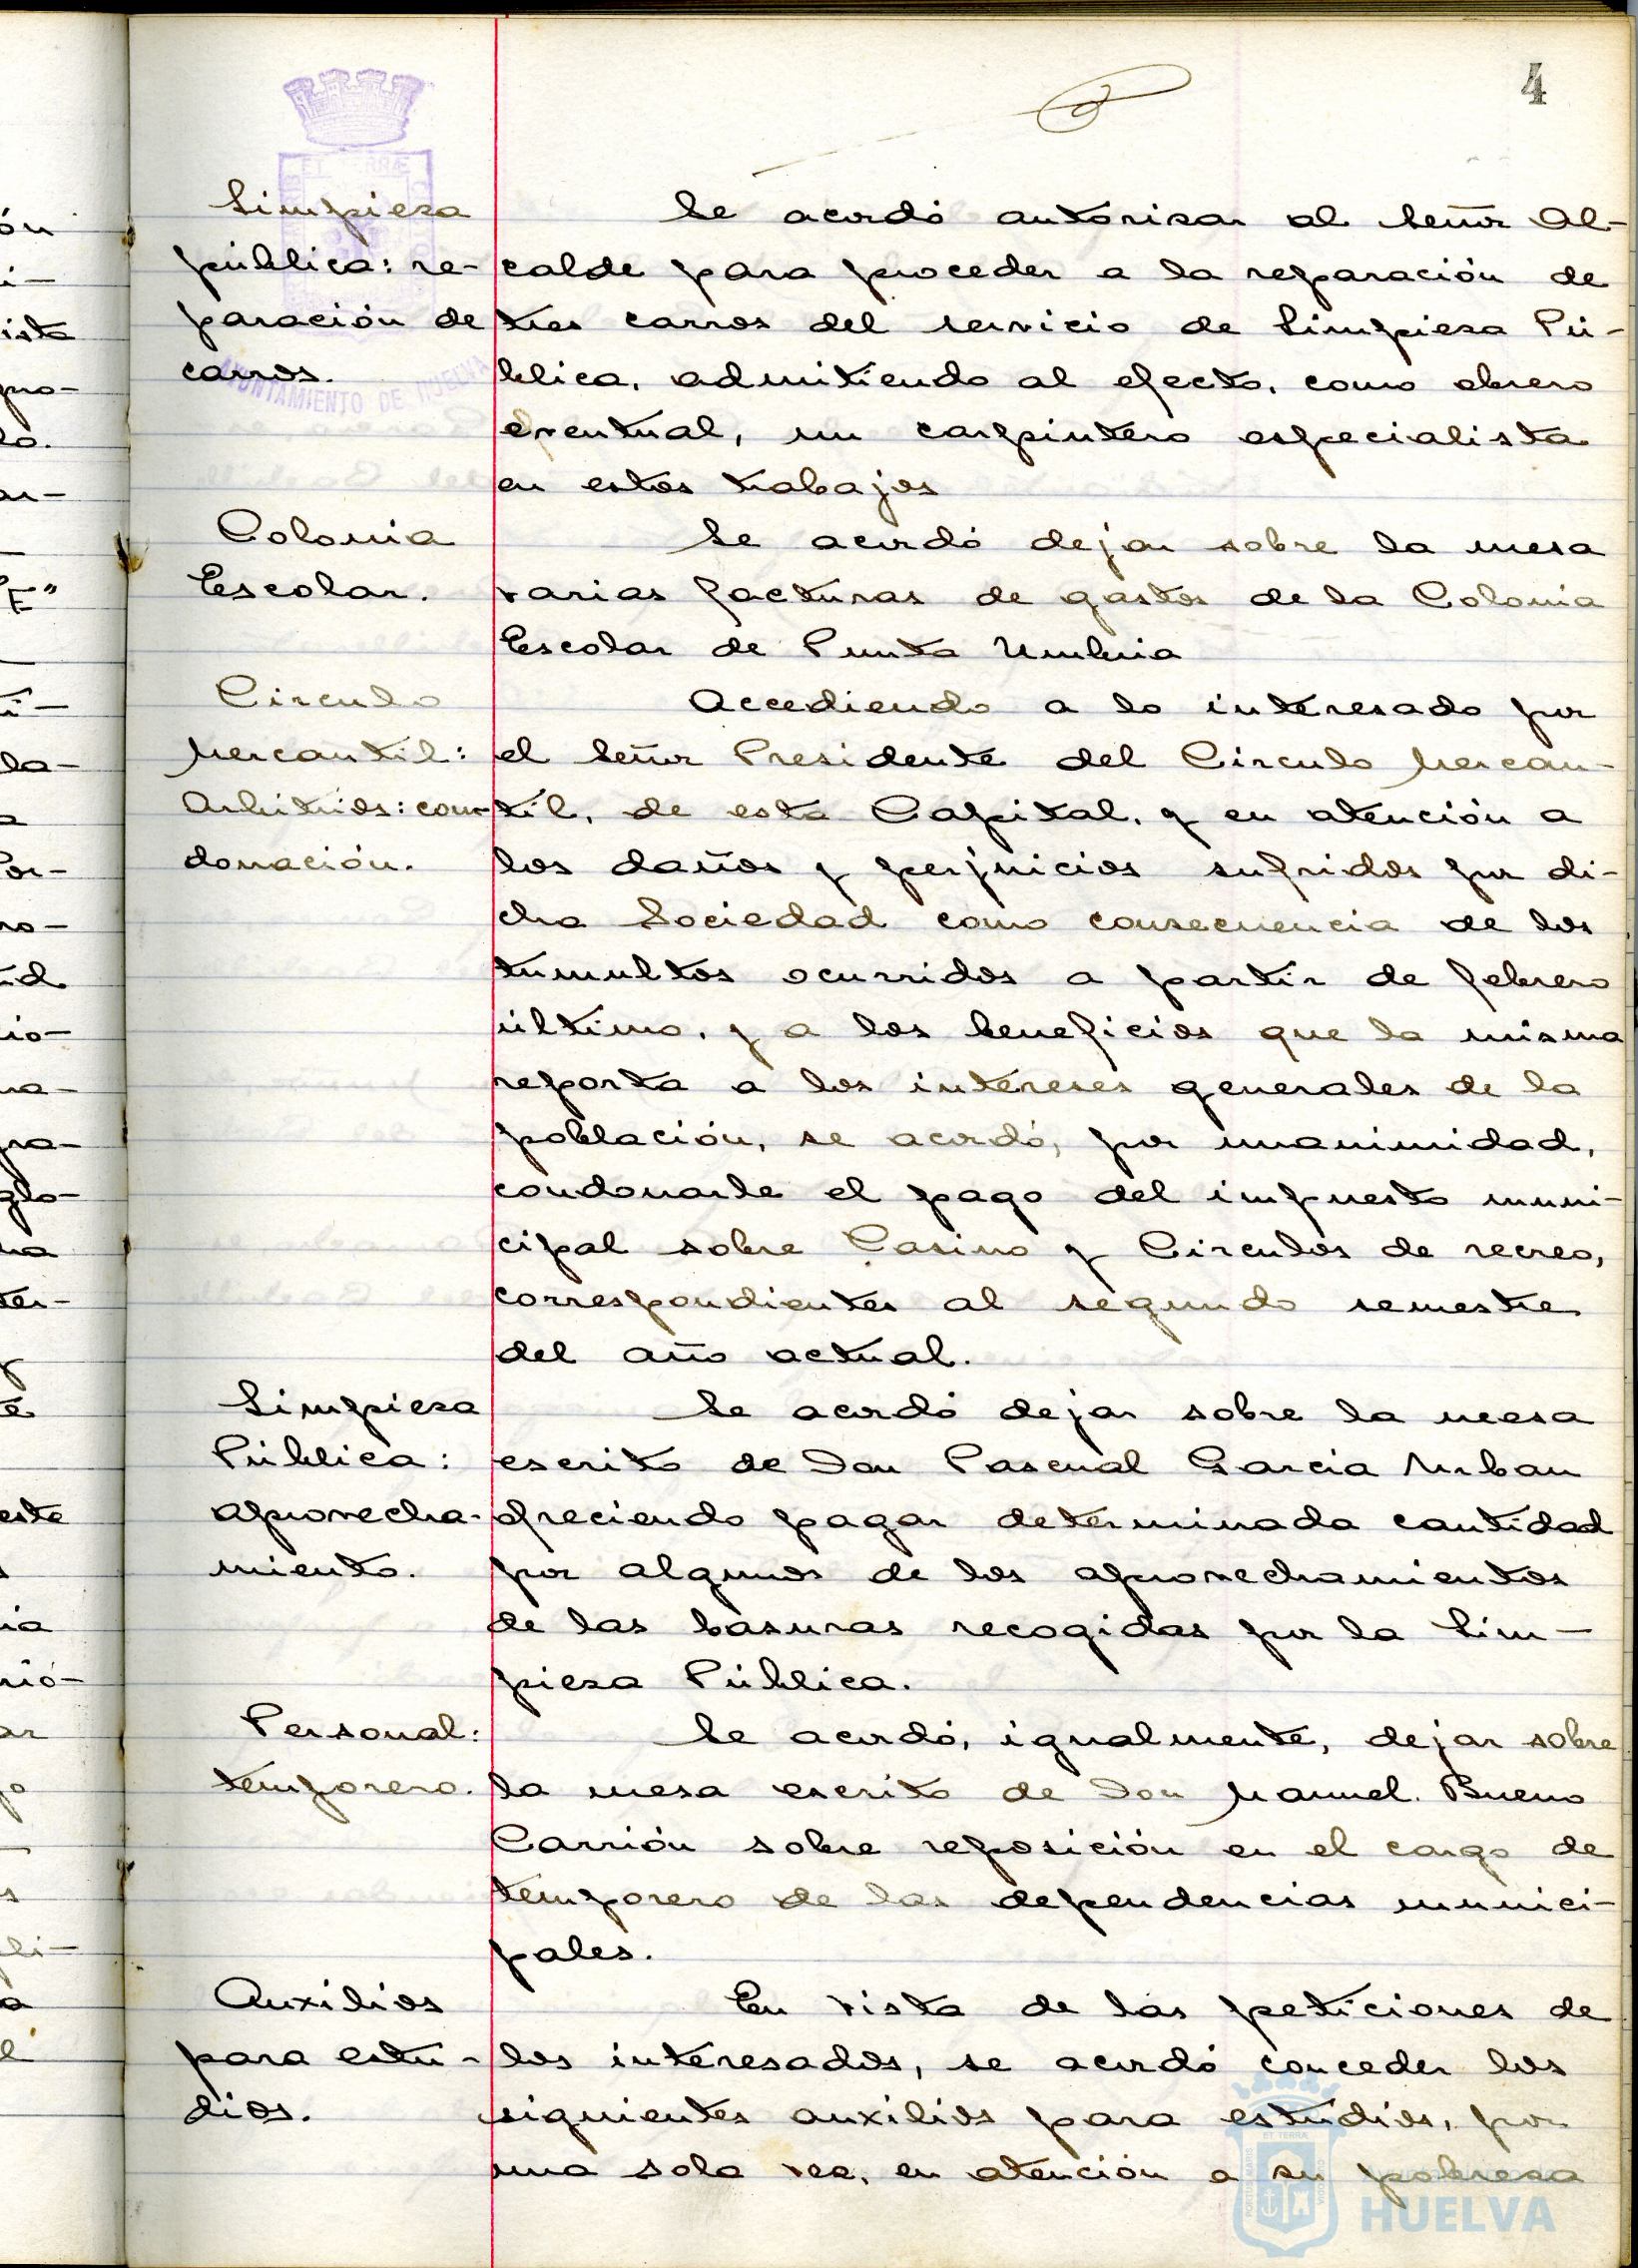 4
Limpieza
pública: re-
paración de
carros.
AYUNTAMIENTO DE HUELVA
Se acordó autorizar al Señor Al-
calde para proceder a la reparación de
tres carros del servicio de Limpieza Pú-
blica, admitiendo al efecto, como obrero
eventual, un carpintero especialista
en estos trabajos
Colonia
Escolar.
Se acordó dejar sobre la mesa
varias facturas de gastos de la Colonia
Escolar de Punta Umbria
Circulo
Mercantil:
Arbitrios: con-
donación.
Accediendo a lo interesado por
el Señor Presidente del Circulo Mercan-
til, de esta Capital, y en atención a
los daños y perjuicios sufridos por di-
cha Sociedad como consecuencia de los
tumultos ocurridos a partir de febrero
último, y a los beneficios que la misma
reporta a los intereses generales de la
población, se acordó, por unanimidad,
condonarle el pago del impuesto muni-
cipal sobre Casino y Circulos de recreo,
correspondientes al segundo semestre
del año actual.
Limpieza
Pública:
aprovecha-
miento.
Se acordó dejar sobre la mesa
escrito de Don Pascual Garcia Urban
ofreciendo pagar determinada cantidad
por algunos de los aprovechamientos
de las basuras recogidas por la Lim-
pieza Pública.
Personal:
temporero.
Se acordó, igualmente, dejar sobre
la mesa escrito de Don Manuel Bueno
Carrión sobre reposición en el cargo de
temporero de las dependencias munici-
pales.
Auxilios
para estu-
dios.
En vista de las peticiones de
los interesados, se acordó conceder los
siguientes auxilios para estudios, por
una sola vez, en atención a su pobreza
HUELVA